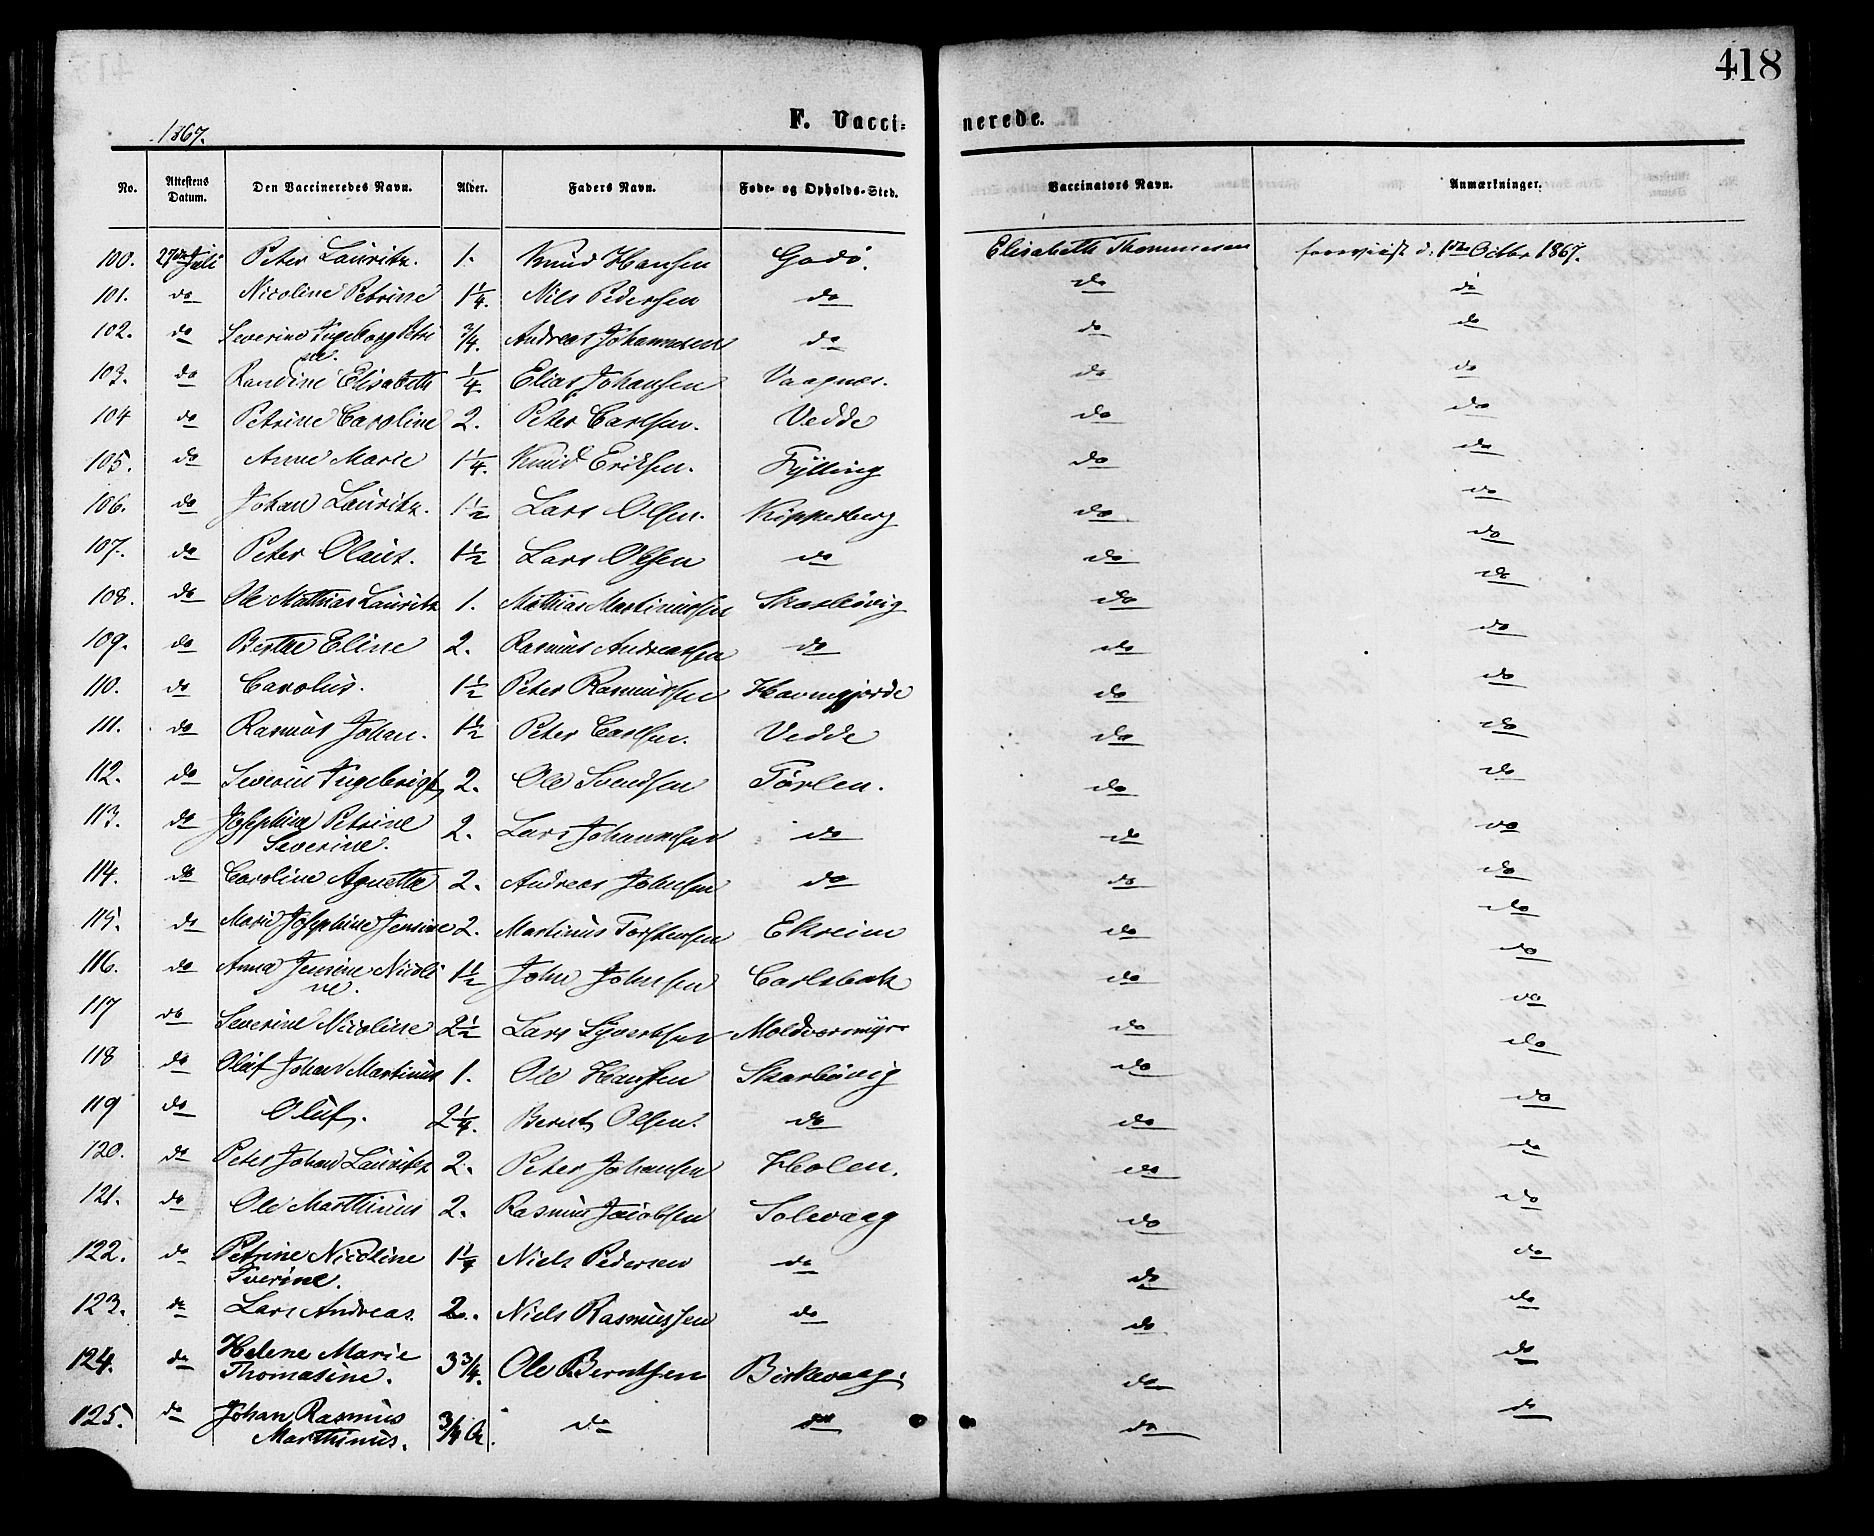 418
1867.
F. Vaccinerede.
No. Attestens Datum. Den Vaccineredes Navn. Alder. Faders Navn. Føde- og Opholds-Sted. Vaccinators Navn. Anmærkninger.
100. 27de Juli Peter Lauritz. 1. Knud Hansen Godø. Elisabeth Thommesen foreviist d. 1ste Octbr 1867.
101. do Nicoline Petrine 1 1/4. Nils Pedersen do do do
102. do Severine Ingeborg Petri 3/4. Andreas Johannesen do do do
ne.
103. do Randine Elisabeth 1/4 Elias Johansen Vaagnes. do do
104 do Petrine Caroline 2. Peter Carlsen. Vedde do do
105. do Anne Marie 1 1/4. Knud Eriksen. Fylling do do
106. do Johan Lauritz. 1 1/2 Lars Olsen. Kipperberg do do
107. do Peter Olaus. 1 1/2 Lars Olsen do do do
108. do Ole Mathias Lauritz 1. Mathias Martinussen Skarbøvig do do
109. do Berthe Eline 2. Rasmus Andreassen do do do
110. do Carolus. 1 1/2 Peter Rasmussen Havnegjerde do do
111. do Rasmus Johan. 1 1/2 Peter Carlsen. Vedde do do
112. do Severin Ingebrigt 2. Ole Svendsen Tørlen. do do
113. do Josephine Petrine 2. Lars Johannesen do do do
Severine.
114. do Caroline Agnethe 2. Andreas Johnsen do do do
115. do Marie Josephine Jensine 2. Martinus Torstensen Ekreim do do
116. do Anna Jensine Nicoli 1 1/2 John Johnsen Carlsbak do do
ne.
117 do Severine Nicoline 2 1/2 Lars Syvertsen Moldversmyr do do
118 do Oluf Johan Martinus 1. Ole Hansen Skarbøvig do do
119 do Oluf. 2 1/4. Bernt Olsen. do do do
120. do Peter Johan Lauritz 2. Peter Johansen Holen. do do
121. do Ole Marthinus 2. Rasmus Jacobsen Solevaag do do
122. do Petrine Nicoline 1 1/4 Niels Pedersen do do do
Iverine.
123. do Lars Andreas. 2. Niels Rasmussen do do do
124. do Helene Marie 3 3/4. Ole Berntsen Birkevaag. do do
Thomasine.
125. do Johan Rasmus 3/4 do do do do
Marthinus.